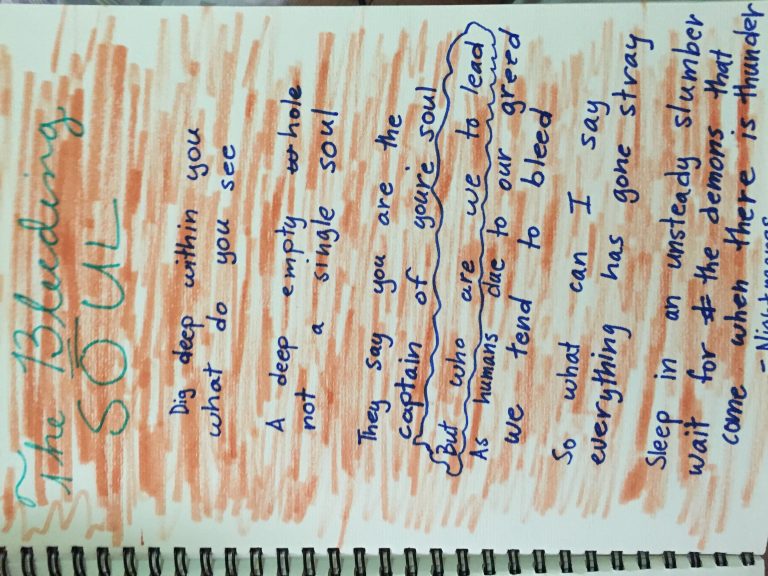 The Bleeding
SOUL
Dig deep within you
what do you see
A deep empty whole
not a single soul
They say you are the
captain of youre soul
But who are we to lead
As humans due to our greed
we tend to bleed
So what can I say
everything has gone stray
Sleep in an unsteady slumber
wait for the demons that
come when there is thunder
- Nightmares